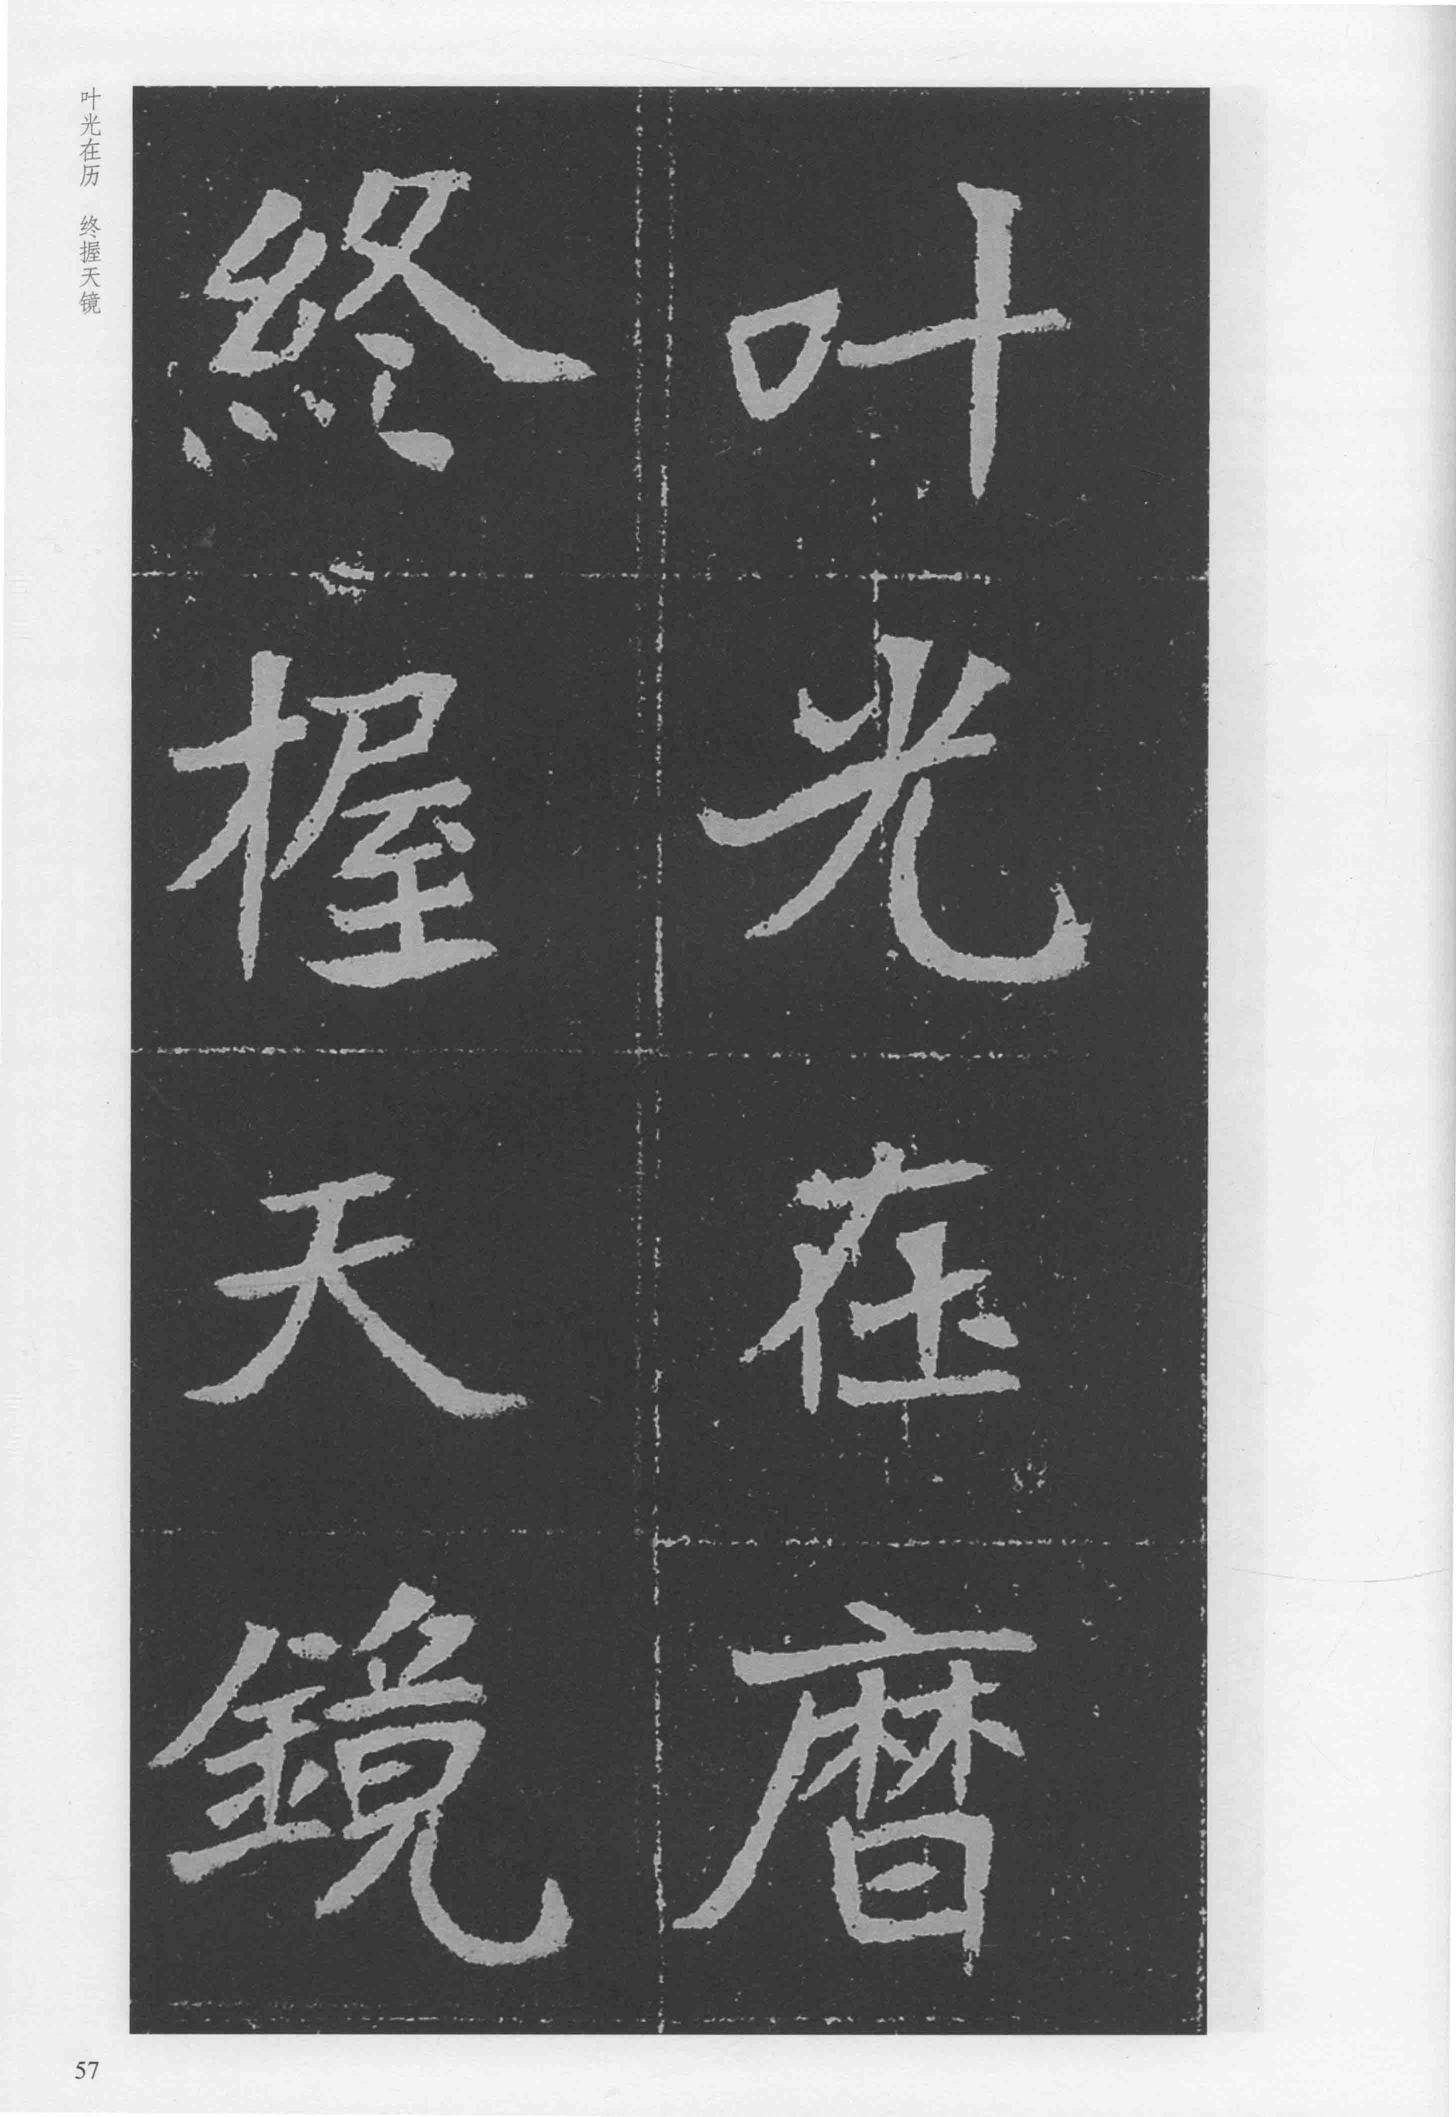 叶光在暦
終握天鏡
叶光在历 终握天镜
57